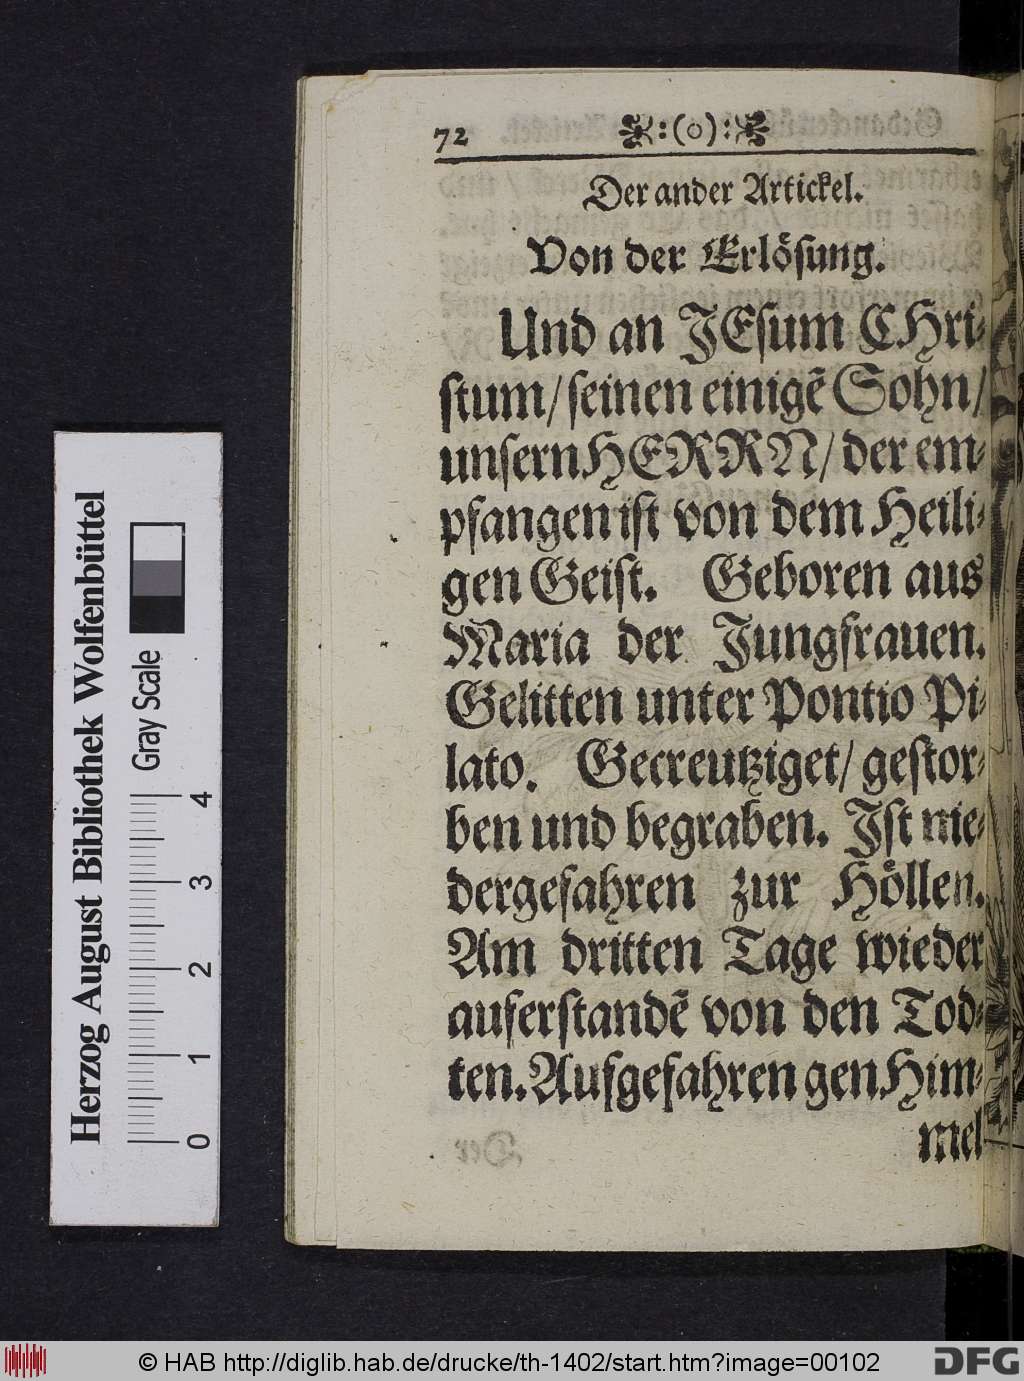 72 :(o):
Der ander Artickel.
Von der Erlösung.
Und an JEsum CHri-
stum/seinen einigẽ Sohn/
unsern HERRN/ der em-
pfangen ist von dem Heili-
gen Geist. Geboren aus
Maria der Jungfrauen.
Gelitten unter Pontio Pi-
lato. Gecreutziget/ gestor-
ben und begraben. Ist nie-
dergefahren zur Höllen.
Am dritten Tage wieder
auferstandẽ von den Tod-
ten. Aufgefahren gen Him-
mel
Herzog August Bibliothek Wolfenbüttel
Gray Scale
0 1 2 3 4
© HAB http://diglib.hab.de/drucke/th-1402/start.htm?image=00102
DFG